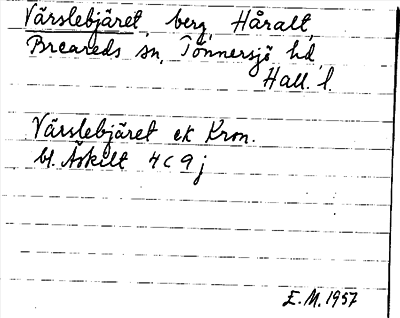 Värslebjäret, berg, Håralt,
Breareds sn, Tönnersjö hd,
Hall. l.
Värslebjäret ek Kron.
bl. Åskilt 4 C 9 j
E. M. 1957